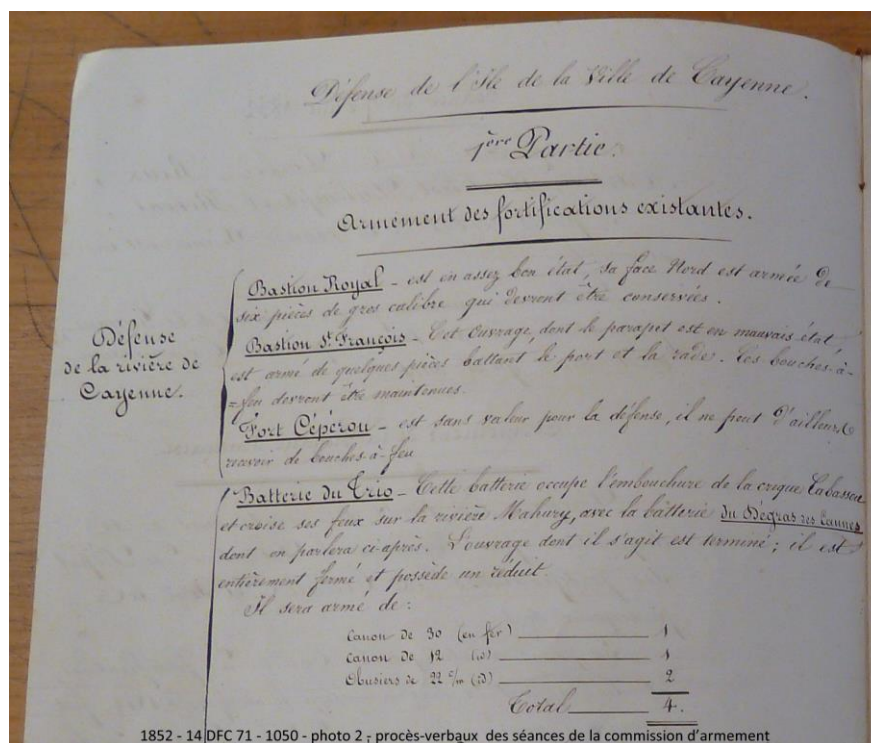 Défense de l'Ile de la Ville de Cayenne.
1ère Partie.
Armement des fortifications existantes.
Bastion Royal - est en assez bon état, sa face Nord est armée de
six pièces de gros calibre qui devront être conservées.
Défense
de la rivière de
Cayenne.
Bastion St. François - Cet ouvrage, dont le parapet est en mauvais état
est armé de quelques pièces battant le port et la rade. Ces bouches-à-
=feu devront être maintenues.
Fort Cépérou - est sans valeur pour la défense, il ne peut d'ailleurs
recevoir de bouches-à-feu
Batterie du Trio - Cette batterie occupe l'embouchure de la crique Cabassou
et croise ses feux sur la rivière Mahury, avec la batterie du Dégras des Cannes
dont on parlera ci-après. L'ouvrage dont il s'agit est terminé ; il est
entièrement fermé et possède un réduit.
Il sera armé de :
Canon de 30 (en fer) 1
Canon de 12 (id) 1
Obusiers de 22 c/m (id) 2
Total 4.
1852 - 14 DFC 71 - 1050 - photo 2 - procès-verbaux des séances de la commission d'armement